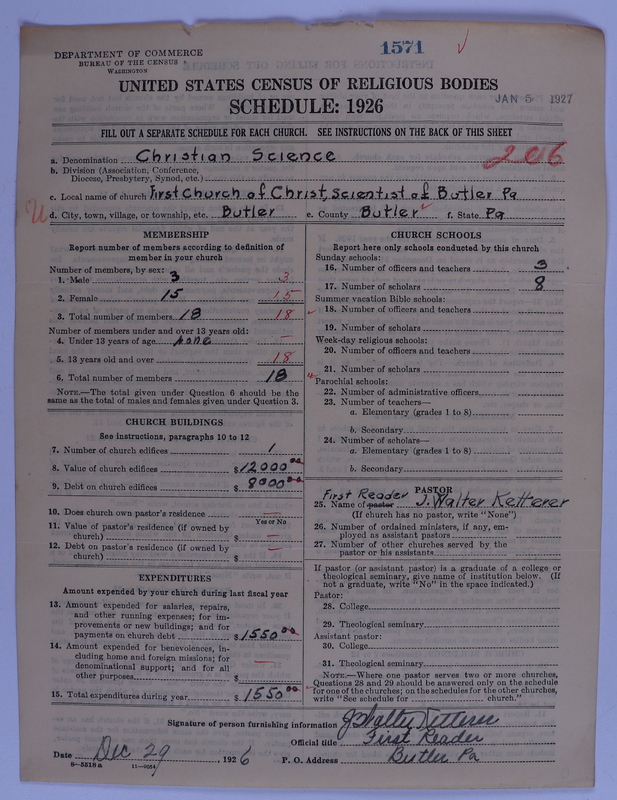 1571
DEPARTMENT OF COMMERCE
BUREAU OF THE CENSUS
WASHINGTON
UNITED STATES CENSUS OF RELIGIOUS BODIES
JAN 5 1927
SCHEDULE: 1926
FILL OUT A SEPARATE SCHEDULE FOR EACH CHURCH. SEE INSTRUCTIONS ON THE BACK OF THIS SHEET
a. Denomination Christian Science 206
b. Division (Association, Conference,
Diocese, Presbytery, Synod, etc.)
c. Local name of church First Church of Christ, Scientist of Butler Pa
d. City, town, village, or township, etc. Butler e. County Butler f. State Pa
MEMBERSHIP
Report number of members according to definition of
member in your church
Number of members, by sex:
1. Male 3 3
2. Female 15 15
3. Total number of members 18 18
Number of members under and over 13 years old:
4. Under 13 years of age none —
5. 13 years old and over 18
6. Total number of members 18
NOTE.—The total given under Question 6 should be the
same as the total of males and females given under Question 3.
CHURCH BUILDINGS
See instructions, paragraphs 10 to 12
7. Number of church edifices 1
8. Value of church edifices $12000 00
9. Debt on church edifices $ 8000 00
10. Does church own pastor's residence —
Yes or No
11. Value of pastor's residence (if owned by
church) $ —
12. Debt on pastor's residence (if owned by
church) $ —
EXPENDITURES
Amount expended by your church during last fiscal year
13. Amount expended for salaries, repairs,
and other running expenses; for im-
provements or new buildings; and for
payments on church debt $1550 00
14. Amount expended for benevolences, in-
cluding home and foreign missions; for
denominational support; and for all
other purposes $ —
15. Total expenditures during year $ 1550 00
CHURCH SCHOOLS
Report here only schools conducted by this church
Sunday schools:
16. Number of officers and teachers 3
17. Number of scholars 8
Summer vacation Bible schools:
18. Number of officers and teachers
19. Number of scholars
Week-day religious schools:
20. Number of officers and teachers
21. Number of scholars
Parochial schools:
22. Number of administrative officers
23. Number of teachers—
a. Elementary (grades 1 to 8)
b. Secondary
24. Number of scholars—
a. Elementary (grades 1 to 8)
b. Secondary
PASTOR
First Reader
25. Name of pastor J. Walter Ketterer
(If church has no pastor, write "None")
26. Number of ordained ministers, if any, em-
ployed as assistant pastors
27. Number of other churches served by the
pastor or his assistants
If pastor (or assistant pastor) is a graduate of a college or
theological seminary, give name of institution below. (If
not a graduate, write "No" in the space indicated.)
Pastor:
28. College
29. Theological seminary
Assistant pastor:
30. College
31. Theological seminary
NOTE.—Where one pastor serves two or more churches,
Questions 28 and 29 should be answered only on the schedule
for one of the churches; on the schedules for the other churches,
write "See schedule for church."
Signature of person furnishing information J Walter Ketterer
Official title First Reader
Date Dec 29, 1926 P. O. Address Butler Pa
8-5518a